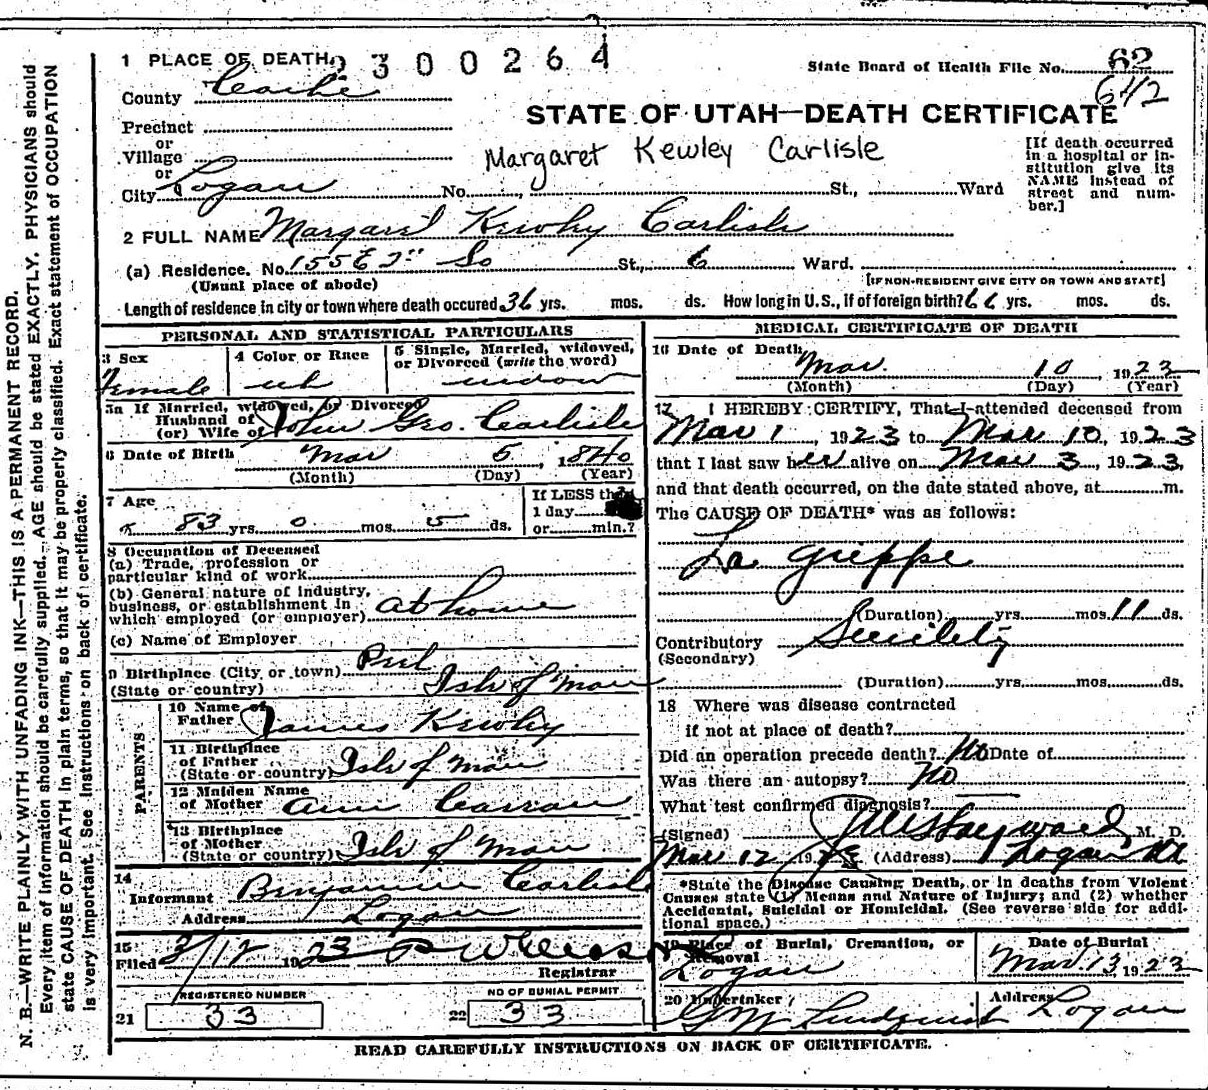 1 PLACE OF DEATH 2300264
State Board of Health File No. 62
642
County Cache
STATE OF UTAH—DEATH CERTIFICATE
Precinct
or
Village
or
City Logan No. St., Ward
Margaret Kewley Carlisle
[If death occurred
in a hospital or in-
stitution give its
NAME instead of
street and num-
ber.]
2 FULL NAME Margaret Kewley Carlisle
(a) Residence. No. 155 E 2" So St., 6 Ward.
(Usual place of abode) [IF NON-RESIDENT GIVE CITY OR TOWN AND STATE]
Length of residence in city or town where death occured 36 yrs. mos. ds. How long in U.S., if of foreign birth? 66 yrs. mos. ds.
PERSONAL AND STATISTICAL PARTICULARS
3 Sex
Female
4 Color or Race
wh
5 Single, Married, widowed,
or Divorced (write the word)
widow
5a If Married, widowed, or Divorced
Husband of
(or) Wife of John Geo. Carlisle
6 Date of Birth Mar 5, 1840
(Month) (Day) (Year)
7 Age
83 yrs. 0 mos. 5 ds.
If LESS than
1 day
or min.?
8 Occupation of Deceased
(a) Trade, profession or
particular kind of work
(b) General nature of Industry,
business, or establishment in
which employed (or employer) at home
(c) Name of Employer
9 Birthplace (City or town) Peel
(State or country) Isle of Man
PARENTS
10 Name of
Father James Kewley
11 Birthplace
of Father
(State or country) Isle of Man
12 Maiden Name
of Mother Ann
13 Birthplace
of Mother
(State or country) Isle of Man
14
Informant Benjamin Carlisle
Address Logan
15
Filed 3/12 1923
Registrar
REGISTERED NUMBER
21 33
NO OF BURIAL PERMIT
22 33
MEDICAL CERTIFICATE OF DEATH
16 Date of Death
Mar. 10, 1923
(Month) (Day) (Year)
17 I HEREBY CERTIFY, That I attended deceased from
Mar 1, 1923 to Mar 10, 1923
that I last saw her alive on Mar 3, 1923,
and that death occurred, on the date stated above, at m.
The CAUSE OF DEATH* was as follows:
La Grippe
(Duration) yrs. mos. 11 ds.
Contributory Senility
(Secondary)
(Duration) yrs. mos. ds.
18 Where was disease contracted
if not at place of death?
Did an operation precede death? No Date of
Was there an autopsy? No
What test confirmed diagnosis?
(Signed) Hayward, M. D.
Mar 12, 1923 (Address) Logan Ut
*State the Disease Causing Death, or in deaths from Violent
Causes state (1) Means and Nature of Injury; and (2) whether
Accidental, Suicidal or Homicidal. (See reverse side for addi-
tional space.)
19 Place of Burial, Cremation, or
Removal
Logan
Date of Burial
Mar. 13, 1923
20 Undertaker
Lindquist
Address
Logan
READ CAREFULLY INSTRUCTIONS ON BACK OF CERTIFICATE.
N. B.—WRITE PLAINLY WITH UNFADING INK—THIS IS A PERMANENT RECORD.
Every item of information should be carefully supplied. AGE should be stated EXACTLY. PHYSICIANS should
state CAUSE OF DEATH in plain terms, so that it may be properly classified. Exact statement of OCCUPATION
is very important. See instructions on back of certificate.